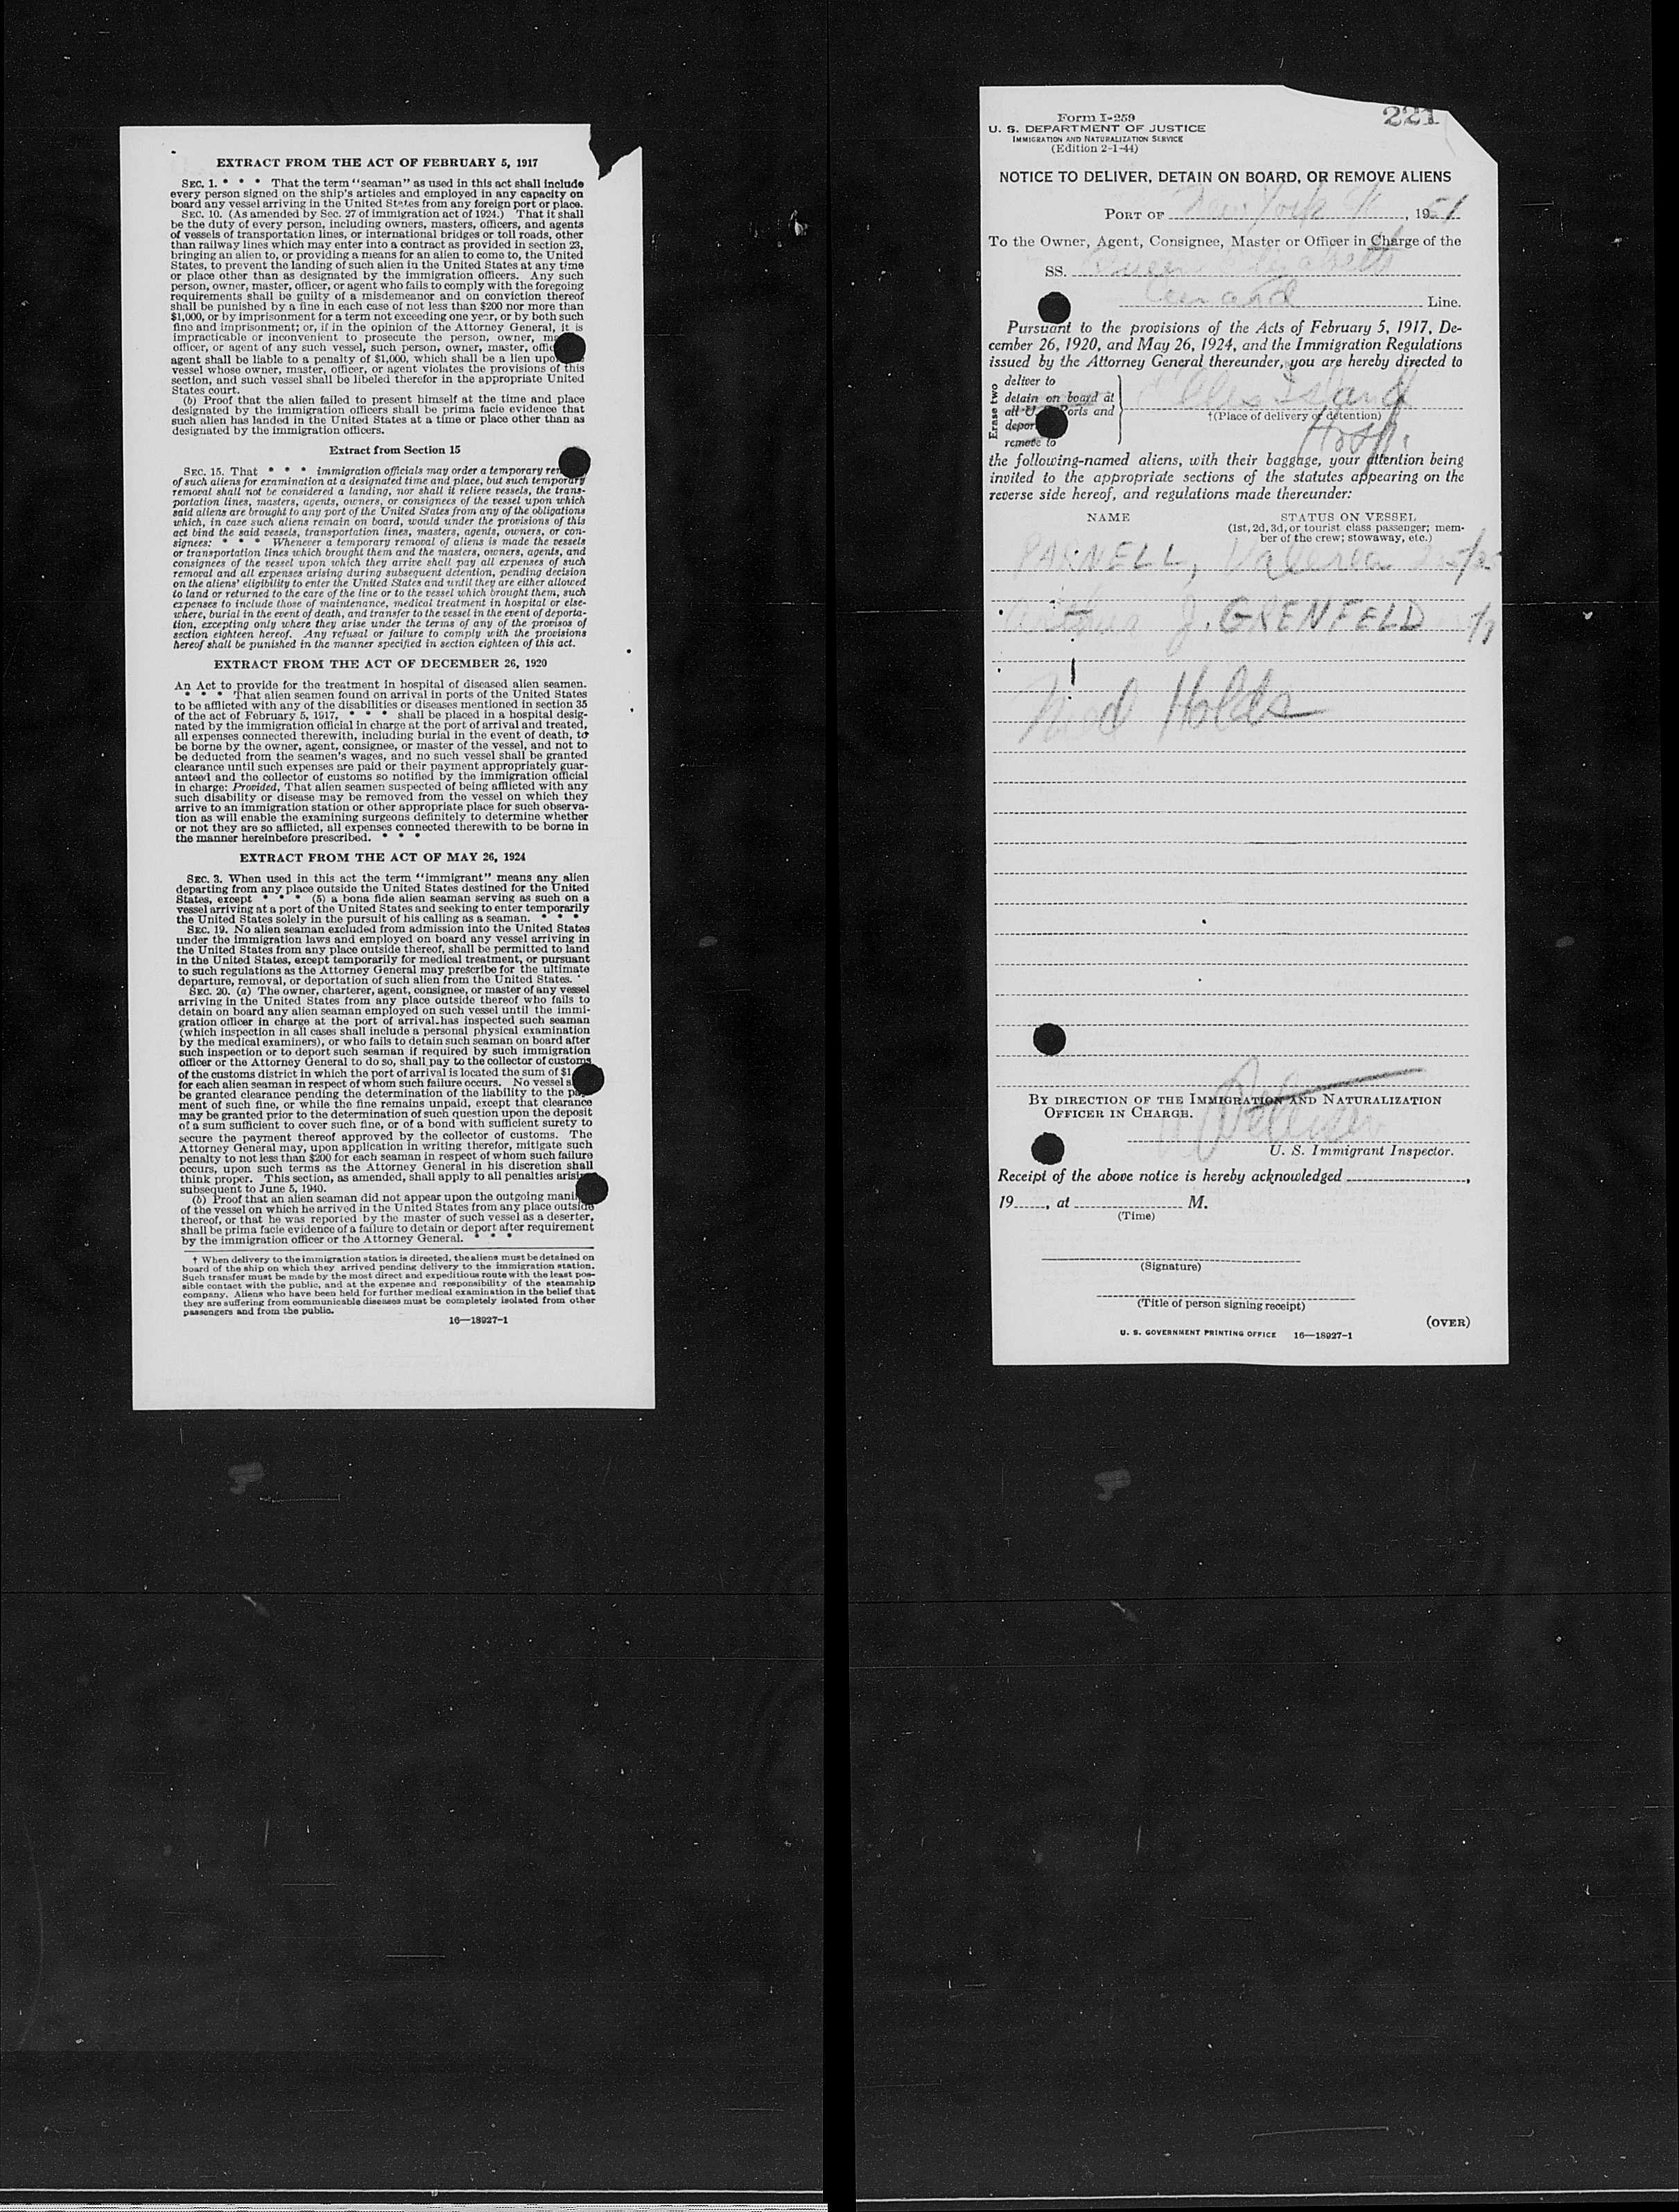 EXTRACT FROM THE ACT OF FEBRUARY 5, 1917
SEC. 1. * * * That the term "seaman" as used in this act shall include
every person signed on the ship's articles and employed in any capacity on
board any vessel arriving in the United States from any foreign port or place.
SEC. 10. (As amended by Sec. 27 of immigration act of 1924.) That it shall
be the duty of every person, including owners, masters, officers, and agents
of vessels of transportation lines, or international bridges or toll roads, other
than railway lines which may enter into a contract as provided in section 23,
bringing an alien to, or providing a means for an alien to come to, the United
States, to prevent the landing of such alien in the United States at any time
or place other than as designated by the immigration officers. Any such
person, owner, master, officer, or agent who fails to comply with the foregoing
requirements shall be guilty of a misdemeanor and on conviction thereof
shall be punished by a fine in each case of not less than $200 nor more than
$1,000, or by imprisonment for a term not exceeding one year, or by both such
fine and imprisonment; or, if in the opinion of the Attorney General, it is
impracticable or inconvenient to prosecute the person, owner, ma
officer, or agent of any such vessel, such person, owner, master, offic
agent shall be liable to a penalty of $1,000, which shall be a lien upo
vessel whose owner, master, officer, or agent violates the provisions of this
section, and such vessel shall be libeled therefor in the appropriate United
States court.
(b) Proof that the alien failed to present himself at the time and place
designated by the immigration officers shall be prima facie evidence that
such alien has landed in the United States at a time or place other than as
designated by the immigration officers.
Extract from Section 15
SEC. 15. That * * * immigration officials may order a temporary rem
of such aliens for examination at a designated time and place, but such temporary
removal shall not be considered a landing, nor shall it relieve vessels, the trans-
portation lines, masters, agents, owners, or consignees of the vessel upon which
said aliens are brought to any port of the United States from any of the obligations
which, in case such aliens remain on board, would under the provisions of this
act bind the said vessels, transportation lines, masters, agents, owners, or con-
signees: * * * Whenever a temporary removal of aliens is made the vessels
or transportation lines which brought them and the masters, owners, agents, and
consignees of the vessel upon which they arrive shall pay all expenses of such
removal and all expenses arising during subsequent detention, pending decision
on the aliens' eligibility to enter the United States and until they are either allowed
to land or returned to the care of the line or to the vessel which brought them, such
expenses to include those of maintenance, medical treatment in hospital or else-
where, burial in the event of death, and transfer to the vessel in the event of deporta-
tion, excepting only where they arise under the terms of any of the provisos of
section eighteen hereof. Any refusal or failure to comply with the provisions
hereof shall be punished in the manner specified in section eighteen of this act.
EXTRACT FROM THE ACT OF DECEMBER 26, 1920
An Act to provide for the treatment in hospital of diseased alien seamen.
* * * That alien seamen found on arrival in ports of the United States
to be afflicted with any of the disabilities or diseases mentioned in section 35
of the act of February 5, 1917, * * * shall be placed in a hospital desig-
nated by the immigration official in charge at the port of arrival and treated,
all expenses connected therewith, including burial in the event of death, to
be borne by the owner, agent, consignee, or master of the vessel, and not to
be deducted from the seamen's wages, and no such vessel shall be granted
clearance until such expenses are paid or their payment appropriately guar-
anteed and the collector of customs so notified by the immigration official
in charge: Provided, That alien seamen suspected of being afflicted with any
such disability or disease may be removed from the vessel on which they
arrive to an immigration station or other appropriate place for such observa-
tion as will enable the examining surgeons definitely to determine whether
or not they are so afflicted, all expenses connected therewith to be borne in
the manner hereinbefore prescribed. * * *
EXTRACT FROM THE ACT OF MAY 26, 1924
SEC. 3. When used in this act the term "immigrant" means any alien
departing from any place outside the United States destined for the United
States, except * * * (5) a bona fide alien seaman serving as such on a
vessel arriving at a port of the United States and seeking to enter temporarily
the United States solely in the pursuit of his calling as a seaman. * * *
SEC. 19. No alien seaman excluded from admission into the United States
under the immigration laws and employed on board any vessel arriving in
the United States from any place outside thereof, shall be permitted to land
in the United States, except temporarily for medical treatment, or pursuant
to such regulations as the Attorney General may prescribe for the ultimate
departure, removal, or deportation of such alien from the United States.
SEC. 20. (a) The owner, charterer, agent, consignee, or master of any vessel
arriving in the United States from any place outside thereof who fails to
detain on board any alien seaman employed on such vessel until the immi-
gration officer in charge at the port of arrival has inspected such seaman
(which inspection in all cases shall include a personal physical examination
by the medical examiners), or who fails to detain such seaman on board after
such inspection or to deport such seaman if required by such immigration
officer or the Attorney General to do so, shall pay to the collector of customs
of the customs district in which the port of arrival is located the sum of $1
for each alien seaman in respect of whom such failure occurs. No vessel s
be granted clearance pending the determination of the liability to the pay-
ment of such fine, or while the fine remains unpaid, except that clearance
may be granted prior to the determination of such question upon the deposit
of a sum sufficient to cover such fine, or of a bond with sufficient surety to
secure the payment thereof approved by the collector of customs. The
Attorney General may, upon application in writing therefor, mitigate such
penalty to not less than $200 for each seaman in respect of whom such failure
occurs, upon such terms as the Attorney General in his discretion shall
think proper. This section, as amended, shall apply to all penalties arising
subsequent to June 5, 1940.
(b) Proof that an alien seaman did not appear upon the outgoing mani
of the vessel on which he arrived in the United States from any place outside
thereof, or that he was reported by the master of such vessel as a deserter,
shall be prima facie evidence of a failure to detain or deport after requirement
by the immigration officer or the Attorney General. * * *
† When delivery to the immigration station is directed, the aliens must be detained on
board of the ship on which they arrived pending delivery to the immigration station.
Such transfer must be made by the most direct and expeditious route with the least pos-
sible contact with the public, and at the expense and responsibility of the steamship
company. Aliens who have been held for further medical examination in the belief that
they are suffering from communicable diseases must be completely isolated from other
passengers and from the public.
16—18927-1
221
Form I-259
U. S. DEPARTMENT OF JUSTICE
IMMIGRATION AND NATURALIZATION SERVICE
(Edition 2-1-44)
NOTICE TO DELIVER, DETAIN ON BOARD, OR REMOVE ALIENS
PORT OF New York, 1951
To the Owner, Agent, Consignee, Master or Officer in Charge of the
SS. Queen Elizabeth
Cunard Line.
Pursuant to the provisions of the Acts of February 5, 1917, De-
cember 26, 1920, and May 26, 1924, and the Immigration Regulations
issued by the Attorney General thereunder, you are hereby directed to
Erase two
deliver to
detain on board at
all U. S. Ports and
depor
remove to
Ellis Island
†(Place of delivery or detention)
Hosp.
the following-named aliens, with their baggage, your attention being
invited to the appropriate sections of the statutes appearing on the
reverse side hereof, and regulations made thereunder:
NAME STATUS ON VESSEL
(1st, 2d, 3d, or tourist class passenger; mem-
ber of the crew; stowaway, etc.)
PARNELL,
J. GRENFELD
Med Holds
BY DIRECTION OF THE IMMIGRATION AND NATURALIZATION
OFFICER IN CHARGE.
U. S. Immigrant Inspector.
Receipt of the above notice is hereby acknowledged
19 , at M.
(Time)
(Signature)
(Title of person signing receipt)
(OVER)
U. S. GOVERNMENT PRINTING OFFICE 16—18927-1